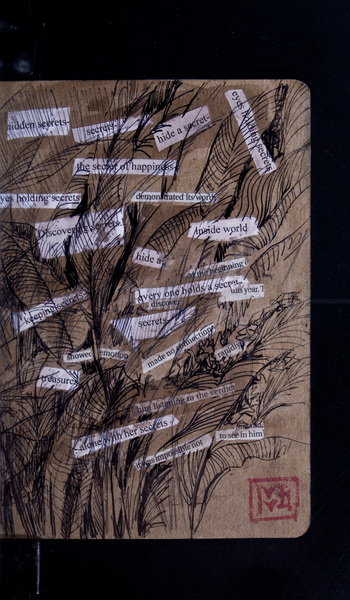 hidden secrets-
secrets
hide a secret-
eyes holding secrets
the secret of happiness-
yes holding secrets
demonstrated its worth
Discovering secrets.
inside world
hide a
the beginning
every one holds a secret-
discover
this year. I
keeping secrets
secrets-
made no connections
showed emotion
treasures
him listening to the verdict
-alone with her secrets-
to see in him
it was impossible not